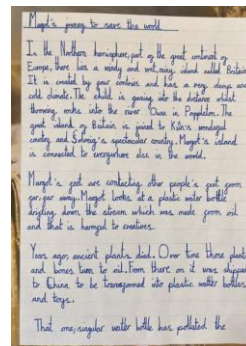 Margot's journey to save this world
In the Northern hemisphere, part of the great continent of
Europe, there lies a windy and wet, mini island called Britain.
It is created by four contries and has a very damp and
cold climate. The child is gazing into the distance whilst
throwing rocks into the river Ouse in Poppleton. The
great island of Britain is joined to Kitri's wonderful
country and Solveig's spectacular country. Margot's island
is connected to everywhere else in the world.
Margot's feet are contacting other people's feet from
far, far away. Margot looks at a plastic water bottle
drifting down the stream which was made from oil
and that is harmful to creatures.
Years ago, ancient plants died. Over time those plants
and bones turn to oil. From there on it was shipped
to China to be transformed into plastic water bottles
and toys.
That one, singular water bottle has polluted the